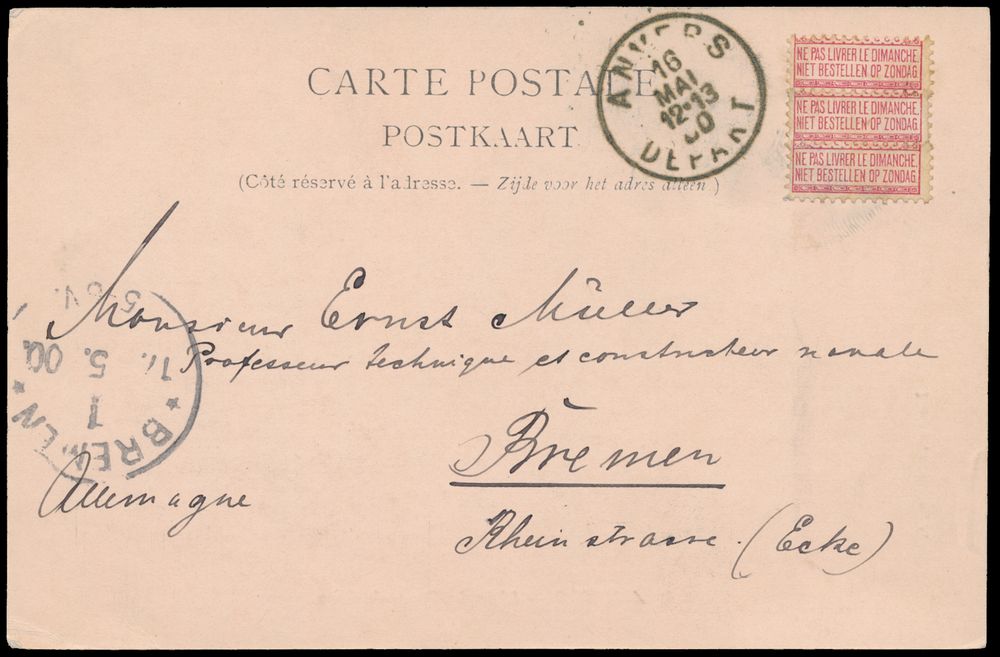 CARTE POSTALE
POSTKAART
(Côté réservé à l'adresse. — Zijde voor het adres alleen)
ANVERS
16
MAI
12-13
DEPART
NE PAS LIVRER LE DIMANCHE.
NIET BESTELLEN OP ZONDAG.
NE PAS LIVRER LE DIMANCHE.
NIET BESTELLEN OP ZONDAG.
NE PAS LIVRER LE DIMANCHE.
NIET BESTELLEN OP ZONDAG.
Monsieur Ernst Müller
Professeur technique et constructeur navale
Bremen
Rheinstrasse. (Ecke)
Allemagne
* BREMEN *
1
5. 00.